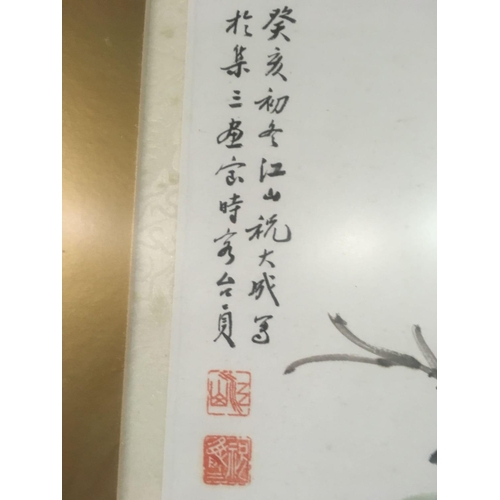 癸亥初冬江山祝大成写
於集三画室時客台員